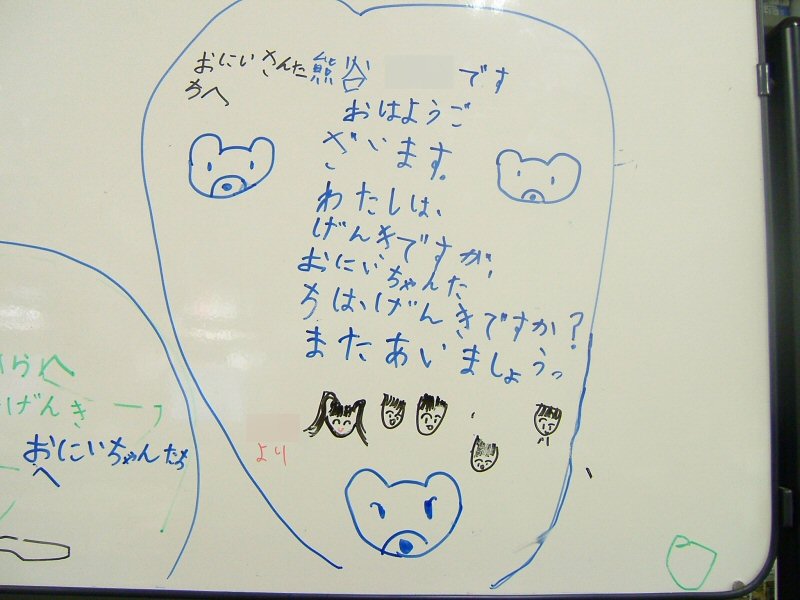 おにいさんた
ちへ
熊谷 です
おはようご
ざいます。
わたしは、
げんきですが、
おにいちゃんた
ちは、げんきですか?
またあいましょうっ
より
げんきーっ
おにいちゃんたち
へ